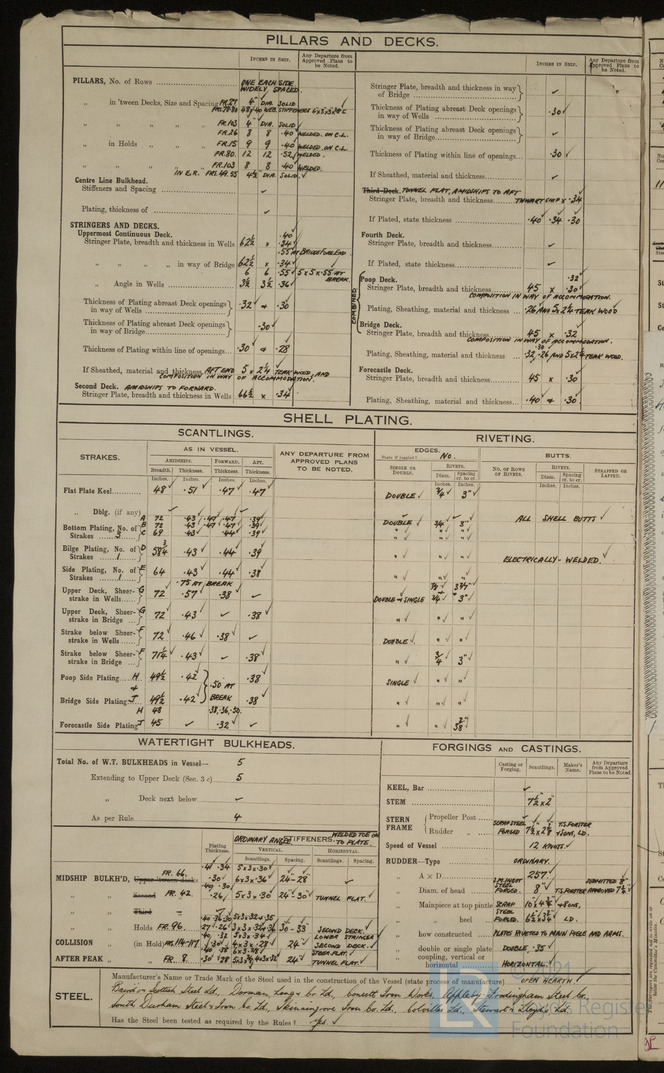 PILLARS AND DECKS.
INCHES IN SHIP.
Any Departure from Approved Plans to be Noted.
PILLARS, No. of Rows ONE EACH SIDE WIDELY SPACED
„ in 'tween Decks, Size and Spacing 4" DIA. SOLID
FR.103 4" DIA. SOLID
FR.26 8 8 .40 WELDED. ON C.L.
„ in Holds FR.15 9 9 .40 WELDED. ON C.L.
FR.80. 12 12 .52 WELDED.
FR.103 8 8 .40 WELDED.
IN E.R. FRS.49.55 4½ DIA. SOLID.
Centre Line Bulkhead.
Stiffeners and Spacing
Plating, thickness of
STRINGERS AND DECKS.
Uppermost Continuous Deck.
Stringer Plate, breadth and thickness in Wells 62½ x .34
.55 AT BRIDGE FORE END
„ „ „ in way of Bridge 62½ x .34
6 6 .55 5 x 5 x .55 AT BREAK
„ Angle in Wells 3½ 3½ .36
Thickness of Plating abreast Deck openings in way of Wells .32 & .30
Thickness of Plating abreast Deck openings in way of Bridge .30
Thickness of Plating within line of openings .30 & .28
If Sheathed, material and thickness AFT END 5 x 2¼ TEAK WOOD, AND
COMPOSITION IN WAY OF ACCOMMODATION.
Second Deck. AMIDSHIPS TO FORWARD.
Stringer Plate, breadth and thickness in Wells 66½ x .34
INCHES IN SHIP.
Any Departure from Approved Plans to be Noted.
Stringer Plate, breadth and thickness in way of Bridge
Thickness of Plating abreast Deck openings in way of Wells .30
Thickness of Plating abreast Deck openings in way of Bridge
Thickness of Plating within line of openings .30
If Sheathed, material and thickness
Third Deck. TUNNEL FLAT, AMIDSHIPS TO AFT
Stringer Plate, breadth and thickness THWARTSHIP x .34
If Plated, state thickness .40 .34 .30
Fourth Deck.
Stringer Plate, breadth and thickness
If Plated, state thickness
COMBINED
Poop Deck. .32
Stringer Plate, breadth and thickness 45 x .30
COMPOSITION IN WAY OF ACCOMMODATION.
Plating, Sheathing, material and thickness .26 AND 5 x 2¼ TEAK WOOD
Bridge Deck.
Stringer Plate, breadth and thickness 45 x .32
COMPOSITION IN WAY OF ACCOMMODATION.
Plating, Sheathing, material and thickness .32 .26 AND 5 x 2¼ TEAK WOOD.
Forecastle Deck.
Stringer Plate, breadth and thickness 45 x .30
Plating, Sheathing, material and thickness .40 & .30
SHELL PLATING.
SCANTLINGS.
RIVETING.
STRAKES.
AS IN VESSEL.
AMIDSHIPS. FORWARD. AFT.
Breadth. Thickness. Thickness. Thickness.
Inches. Inches. Inches. Inches.
ANY DEPARTURE FROM APPROVED PLANS TO BE NOTED.
EDGES.
State if joggled? No.
BUTTS.
SINGLE OR DOUBLE.
RIVETS.
Diam. Spacing cr. to cr.
NO. OR ROWS OF RIVETS.
RIVETS.
Diam. Spacing cr. to cr.
STRAPPED OR LAPPED.
Flat Plate Keel 48 .51 .47 .47 DOUBLE ¾ 3"
„ Dblg. (if any)
A 72 .43 .47 .39 DOUBLE ¾ 3" ALL SHELL BUTTS
Bottom Plating, No. of Strakes 3 B 72 .43 .47 .39
C 69 .43 .44 .39
Bilge Plating, No. of Strakes 1 D 58¾ .43 .44 .39 ELECTRICALLY-WELDED.
Side Plating, No. of Strakes 1 E 64 .43 .44 .38
.75 AT BREAK
Upper Deck, Sheer-strake in Wells G 72 .57 .38 DOUBLE & SINGLE
Upper Deck, Sheer-strake in Bridge G 72 .43 .38
Strake below Sheer-strake in Wells F 72 .46 .38 DOUBLE
Strake below Sheer-strake in Bridge F 71¼ .43 .38 ¾ 3"
Poop Side Plating H 49½ .42 .38 SINGLE
.50 AT BREAK
Bridge Side Plating J 49½ .42 .38
H 48 .38, .36, .50
Forecastle Side Plating J 45 .32
WATERTIGHT BULKHEADS.
Total No. of W.T. BULKHEADS in Vessel— 5
Extending to Upper Deck (Sec. 3 c) 5
„ Deck next below
As per Rule 4
Plating Thickness
ORDINARY ANGLE STIFFENERS. WELDED TOE ON TO PLATE.
VERTICAL. HORIZONTAL.
Scantlings. Spacing. Scantlings. Spacing.
MIDSHIP BULKH'D, Upper 'tween decks FR. 66. 6 x 3 x .36 24-28
„ „ Second „ FR. 42. .26 5 x 3 x .30 24-30 TUNNEL FLAT.
„ „ Third „
„ „ Holds FR. 96. 30-33 SECOND DECK. LOWER STRINGER
COLLISION „ (in Hold) 24" SECOND DECK.
STEER. FLAT.
AFTER PEAK „ „ FR. 8 24" TUNNEL FLAT.
FORGINGS AND CASTINGS.
Casting or Forging. Scantlings. Maker's Name. Any Departure from Approved Plans to be Noted.
KEEL, Bar
STEM 7½ x 2"
STERN FRAME Propeller Post SCRAP STEEL T.S. FORSTER
Rudder „ FORGED & SONS, LD.
Speed of Vessel 12 KNOTS.
RUDDER—Type ORDINARY.
„ A × D 257.
„ Diam. of head FORGED. 8" T.S. FORSTER APPROVED 7½
„ Mainpiece at top pintle SCRAP & SONS,
„ „ heel STEEL FORGED. LD.
„ how constructed PLATES RIVETED TO MAIN PIECE AND ARMS.
„ double or single plate DOUBLE .35
„ coupling, vertical or horizontal HORIZONTAL.
STEEL.
Manufacturer's Name or Trade Mark of the Steel used in the construction of the Vessel (state process of manufacture) OPEN HEARTH.
Bairds & Scottish Steel Ld., Dorman, Long & Co Ld., Consett Iron Works, Appleby Frodingham Steel Co.
South Durham Steel & Iron Co. Ld., Skinningrove Iron Co. Ld., Colvilles Ld., Stewarts & Lloyds Ld.
Has the Steel been tested as required by the Rules? Yes.
Lloyd's Register
Foundation